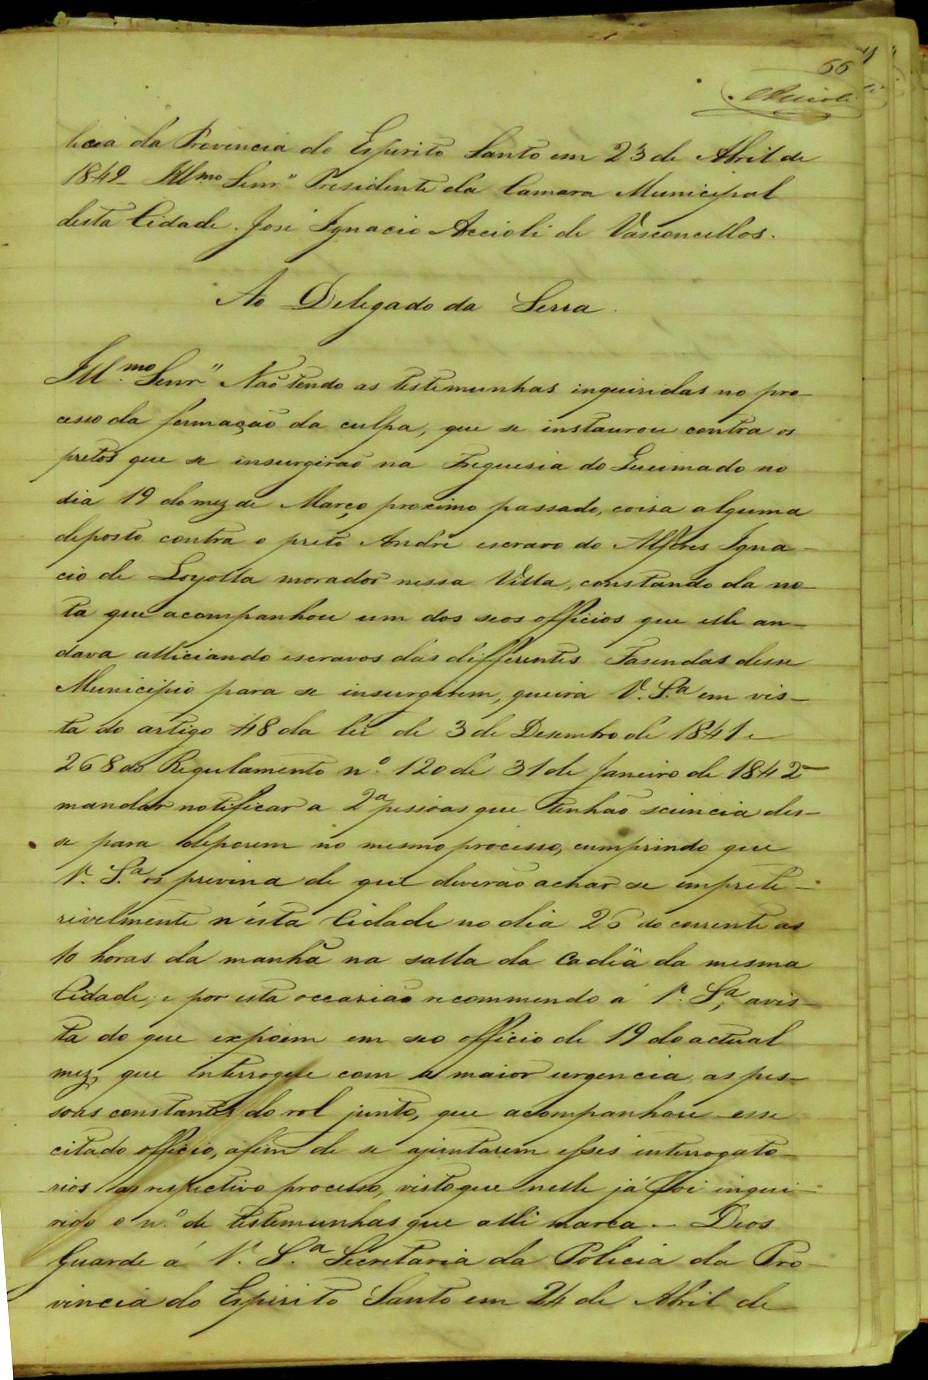 66
Accioli
licia da Provincia do Espirito Santo em 23 de Abril de
1849 - Illmo Senr" Presidente da Camara Municipal
desta Cidade. José Ignacio Accioli de Vasconcellos.
Ao Delegado da Serra.
Ill.mo Senr" Não tendo as testemunhas inquiridas no pro-
cesso da formação da culpa, que se instaurou contra os
pretos que se insurgirão na Freguesia do Queimado no
dia 19 do mez de Março proximo passado, coisa alguma
deposto contra o preto André escravo do Alferes Igna-
cio de Loyolla morador nessa Villa, constando da no-
ta que acompanhou um dos seos officios que elle an-
dava alliciando escravos das differentes Fasendas desse
Municipio para se insurgirem, queira V. S.a em vis-
ta do artigo 48 da lei de 3 de Desembro de 1841 e
268 do Regulamento nº 120 de 31 de Janeiro de 1842
mandar notificar a 2 a pessoas que tenhão sciencia des-
se para deporem no mesmo processo, cumprindo que
V. S.a os previna de que deverão achar se imprete-
rivelmente n'esta Cidade no dia 26 do corrente as
10 horas da manhã na salla da Cadêa da mesma
Cidade; e por esta occasião recommendo á V. S.a, avis-
ta do que expoem em seo officio de 19 do actual
mez, que interrogue com a maior urgencia as pes-
soas constantes do rol junto, que acompanhou esse
citado officio, afim de se ajuntarem esses interrogato-
rios ao respectivo processo, visto que nelle já foi inqui-
rido o n.º de testemunhas que alli marca. - Deos
Guarde á V. S.a Secretaria da Policia da Pro-
vincia do Espirito Santo em 24 de Abril de